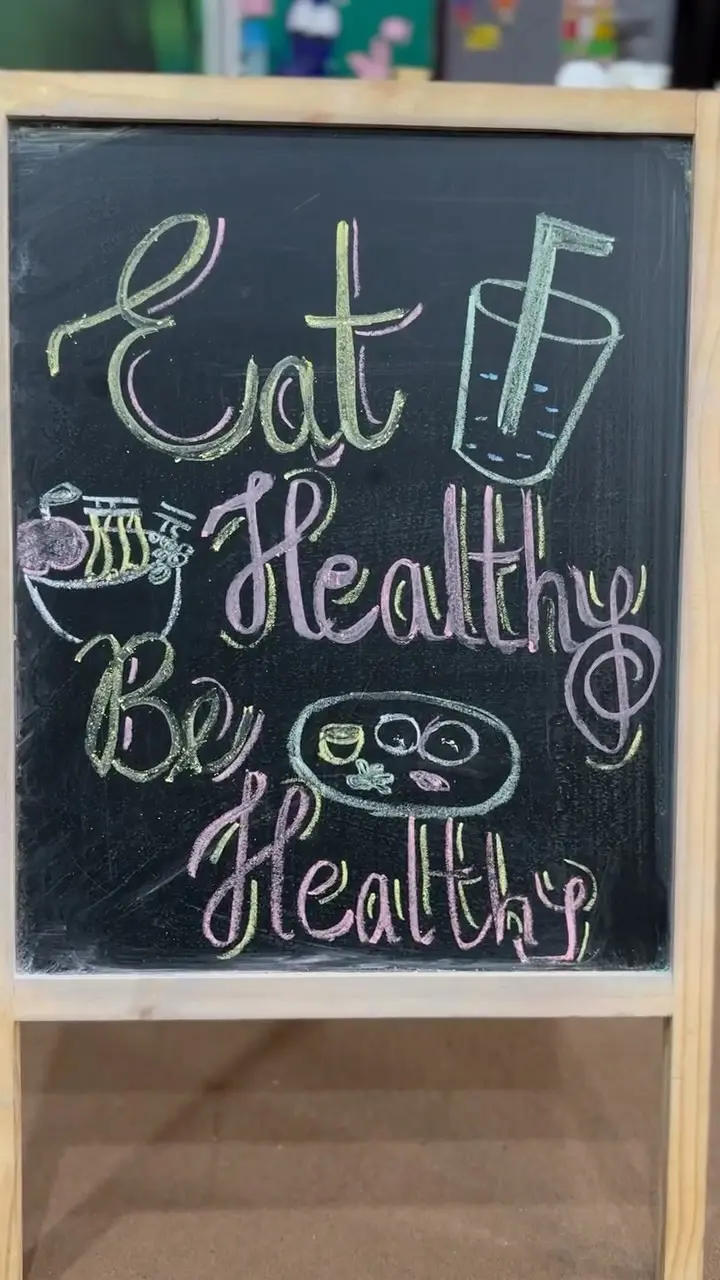 Eat
Healthy
Be
Healthy